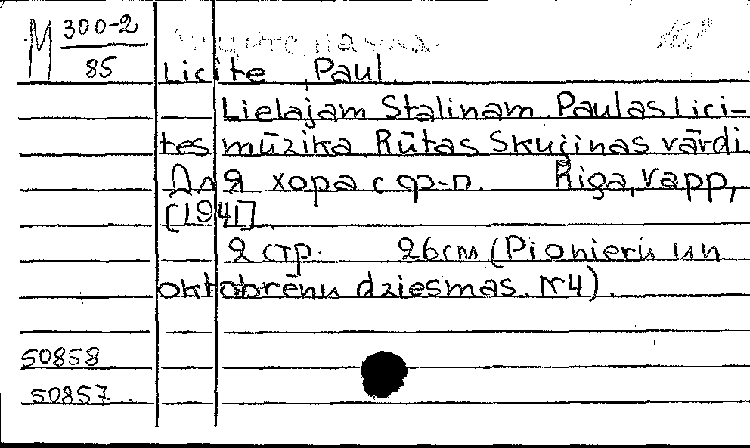 M 300-2
85
Licite Paul.
Lielajam Stalinam. Paulas Lici-
tes mūzika Rūtas Skujiņas vārdi
Для хора с ф-п. Riga, Vapp,
[1941]
2 стр. 26 cm (Pionieru un
oktobrēnu dziesmas. Nr 4).
50858
50857.